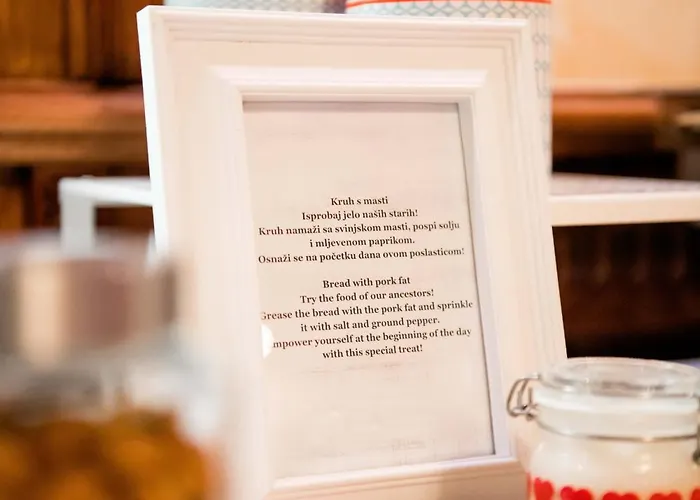 Kruh s masti
Isprobaj jelo naših starih!
Kruh namaži sa svinjskom masti, pospi solju
i mljevenom paprikom.
Osnaži se na početku dana ovom poslasticom!
Bread with pork fat
Try the food of our ancestors!
Grease the bread with the pork fat and sprinkle
it with salt and ground pepper.
Empower yourself at the beginning of the day
with this special treat!